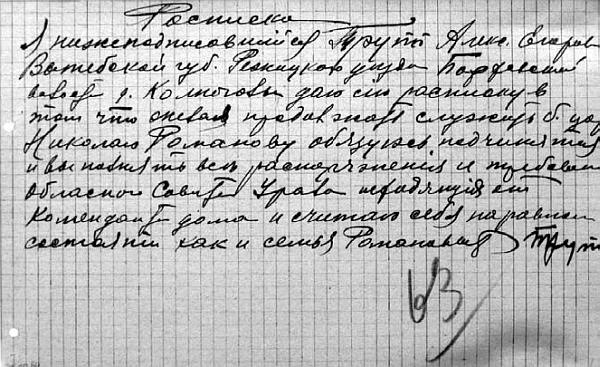 Росписка
Я нижеподписавшийся Трупп Алекс. Егоров
Витебской губ. Режицкого уезда Борховской
волости д. Колногова даю сію расписку в
том что желая продолжать служить б. цар
Николаю Романову обязуюсь подчинятся
и выполнять все распоряжения и требован
Областного Совета Урала исходящія от
Коменданта дома и считать себя на равном
состояніи как и семья Романовых Трупп